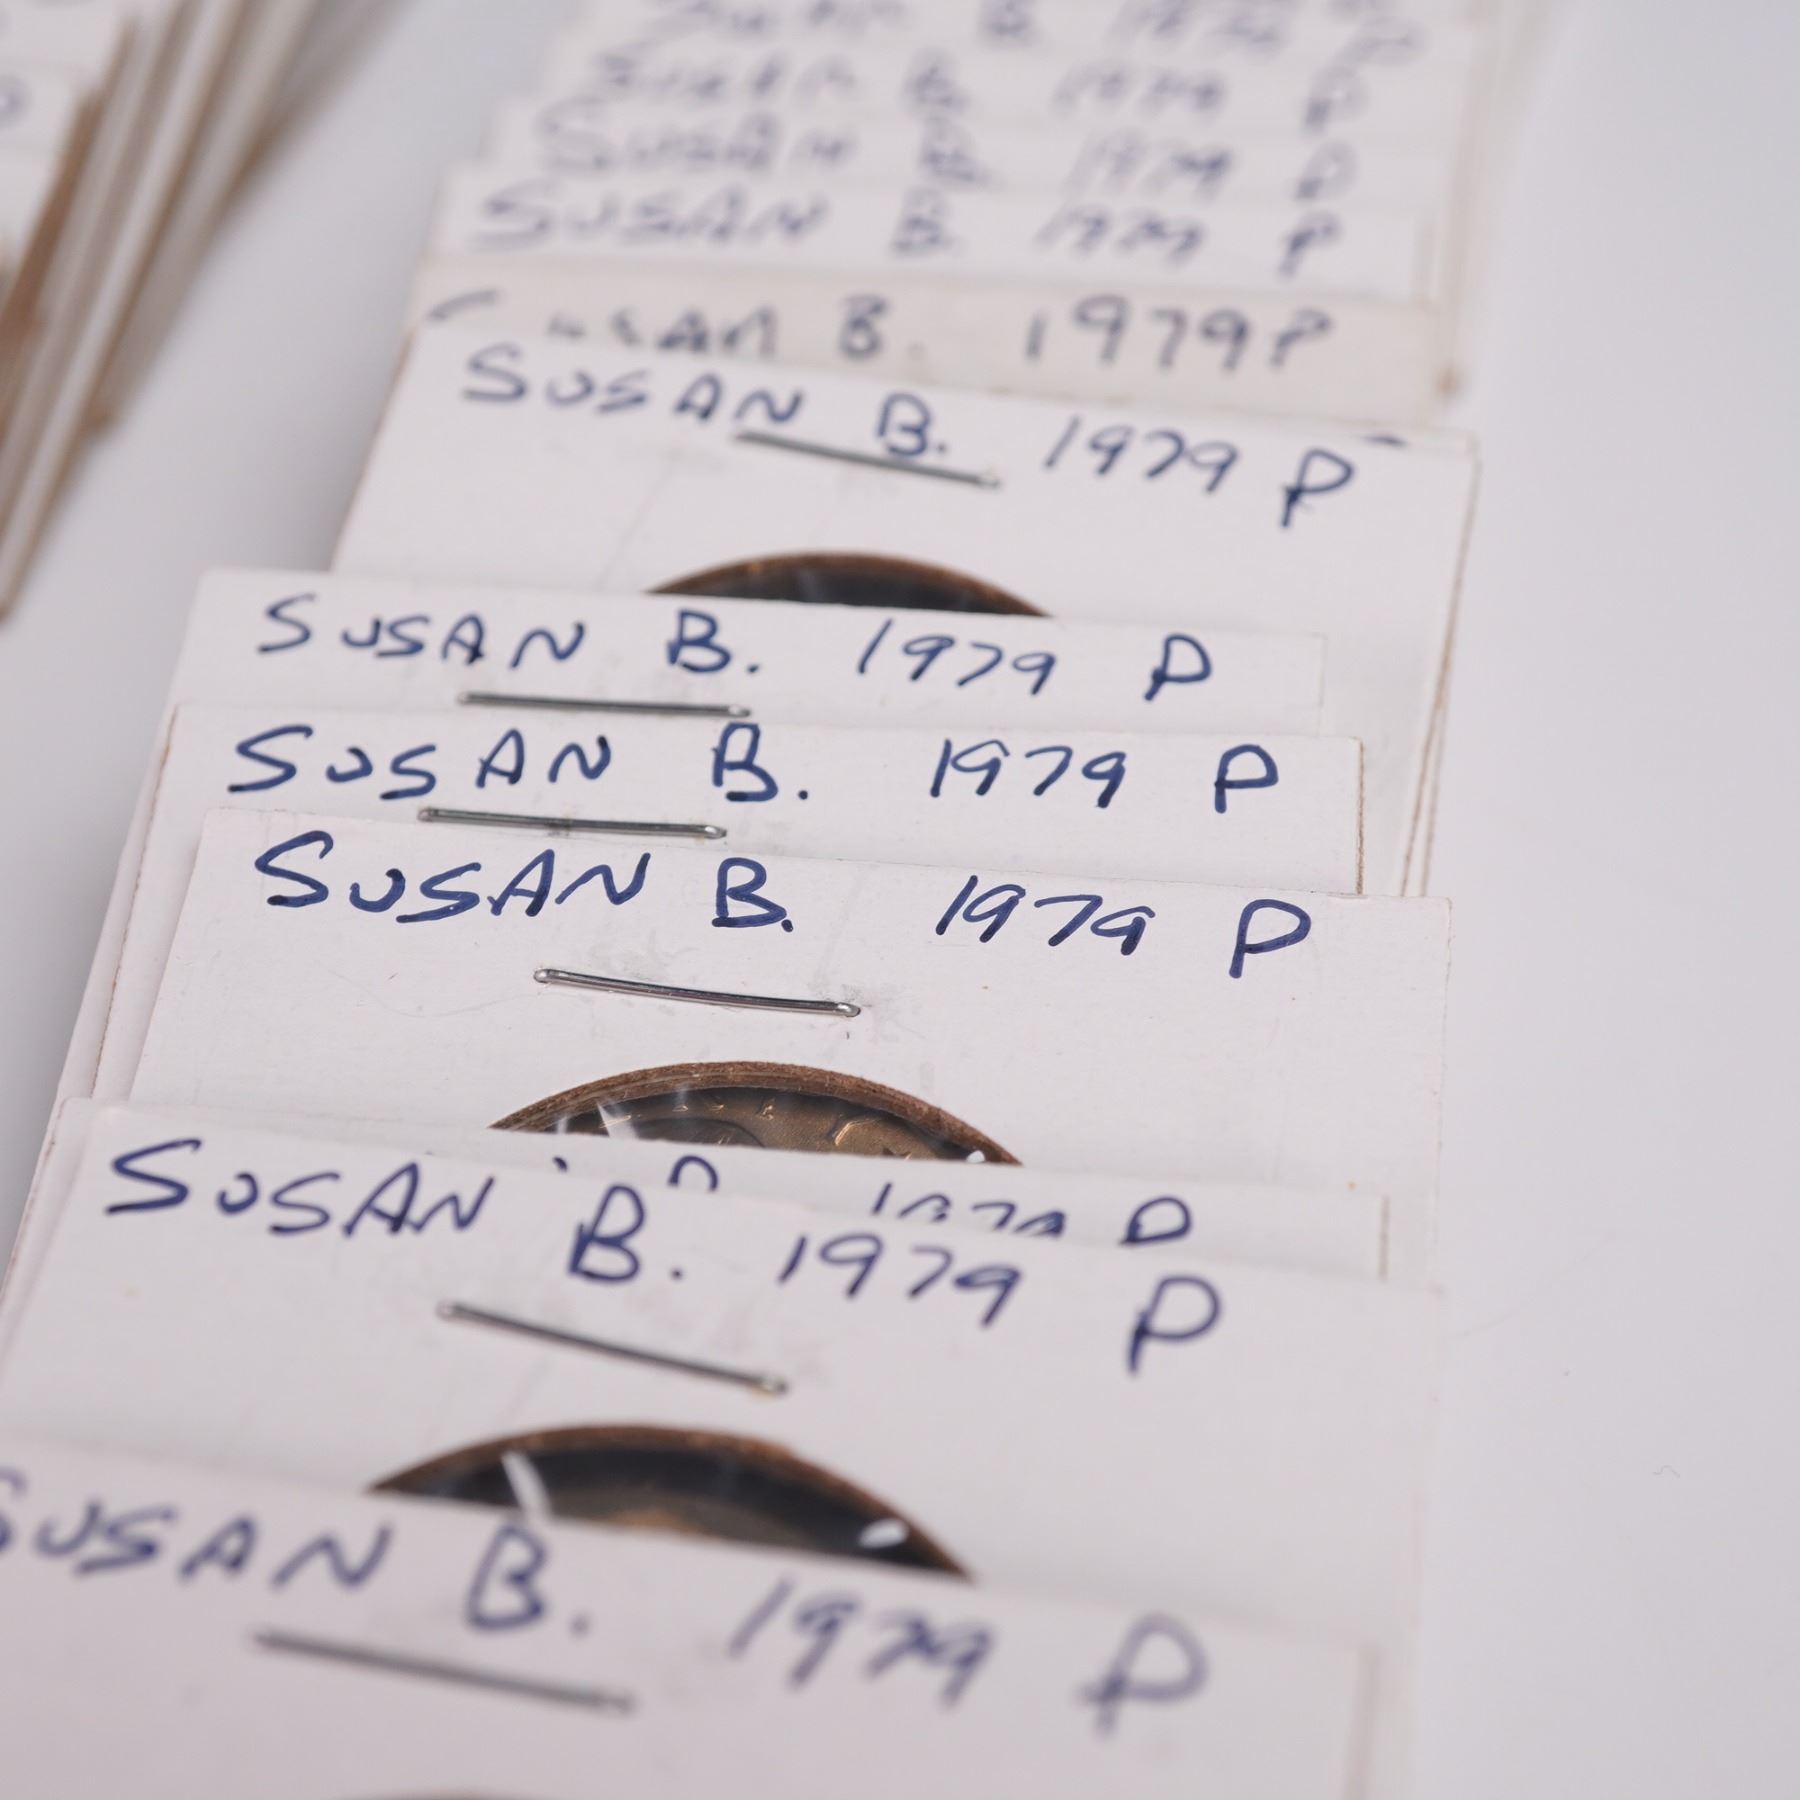 SUSAN B. 1979 P
SUSAN B. 1979 P
SUSAN B. 1979 P
SUSAN B. 1979 P
SUSAN B. 1979 P
SUSAN B. 1979 P
SUSAN B. 1979 P
SUSAN B. 1979 P
SUSAN B. 1979 P
1979 P
SUSAN B. 1979 P
SUSAN B. 1979 P